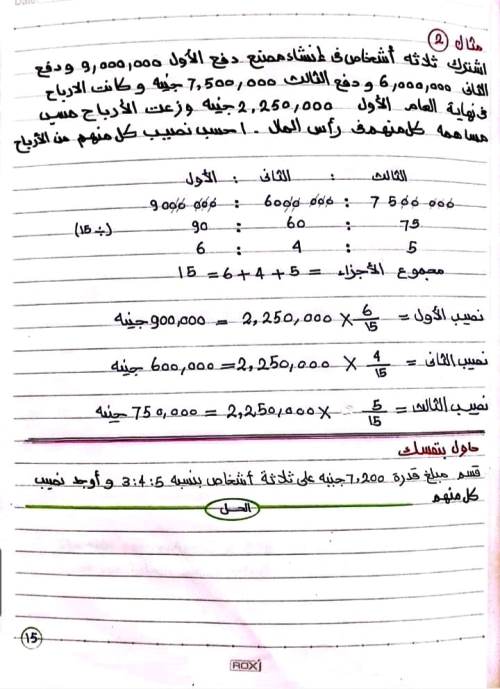 مثال (2)
اشترك ثلاثه أشخاص فى انشاء مصنع دفع الأول 9,000,000 و دفع
الثانى 6,000,000 و دفع الثالث 7,500,000 جنيه و كانت الارباح
فى نهاية العام الأول 2,250,000 جنيه وزعت الأرباح حسب
مساهمة كل منهم فى رأس المال . احسب نصيب كل منهم من الأرباح
الأول : الثانى : الثالث
9000 000 : 6000 000 : 7 500 000
90 : 60 : 75 (÷ 15)
6 : 4 : 5
مجموع الأجزاء = 5 + 4 + 6 = 15
نصيب الأول = 6/15 × 2,250,000 = 900,000 جنيه
نصيب الثانى = 4/15 × 2,250,000 = 600,000 جنيه
نصيب الثالث = 5/15 × 2,250,000 = 750,000 جنيه
حاول بنفسك
قسم مبلغ قدرة 7,200 جنيه على ثلاثة أشخاص بنسبه 3:4:5 و أوجد نصيب
كل منهم
الحل
15
ROXI